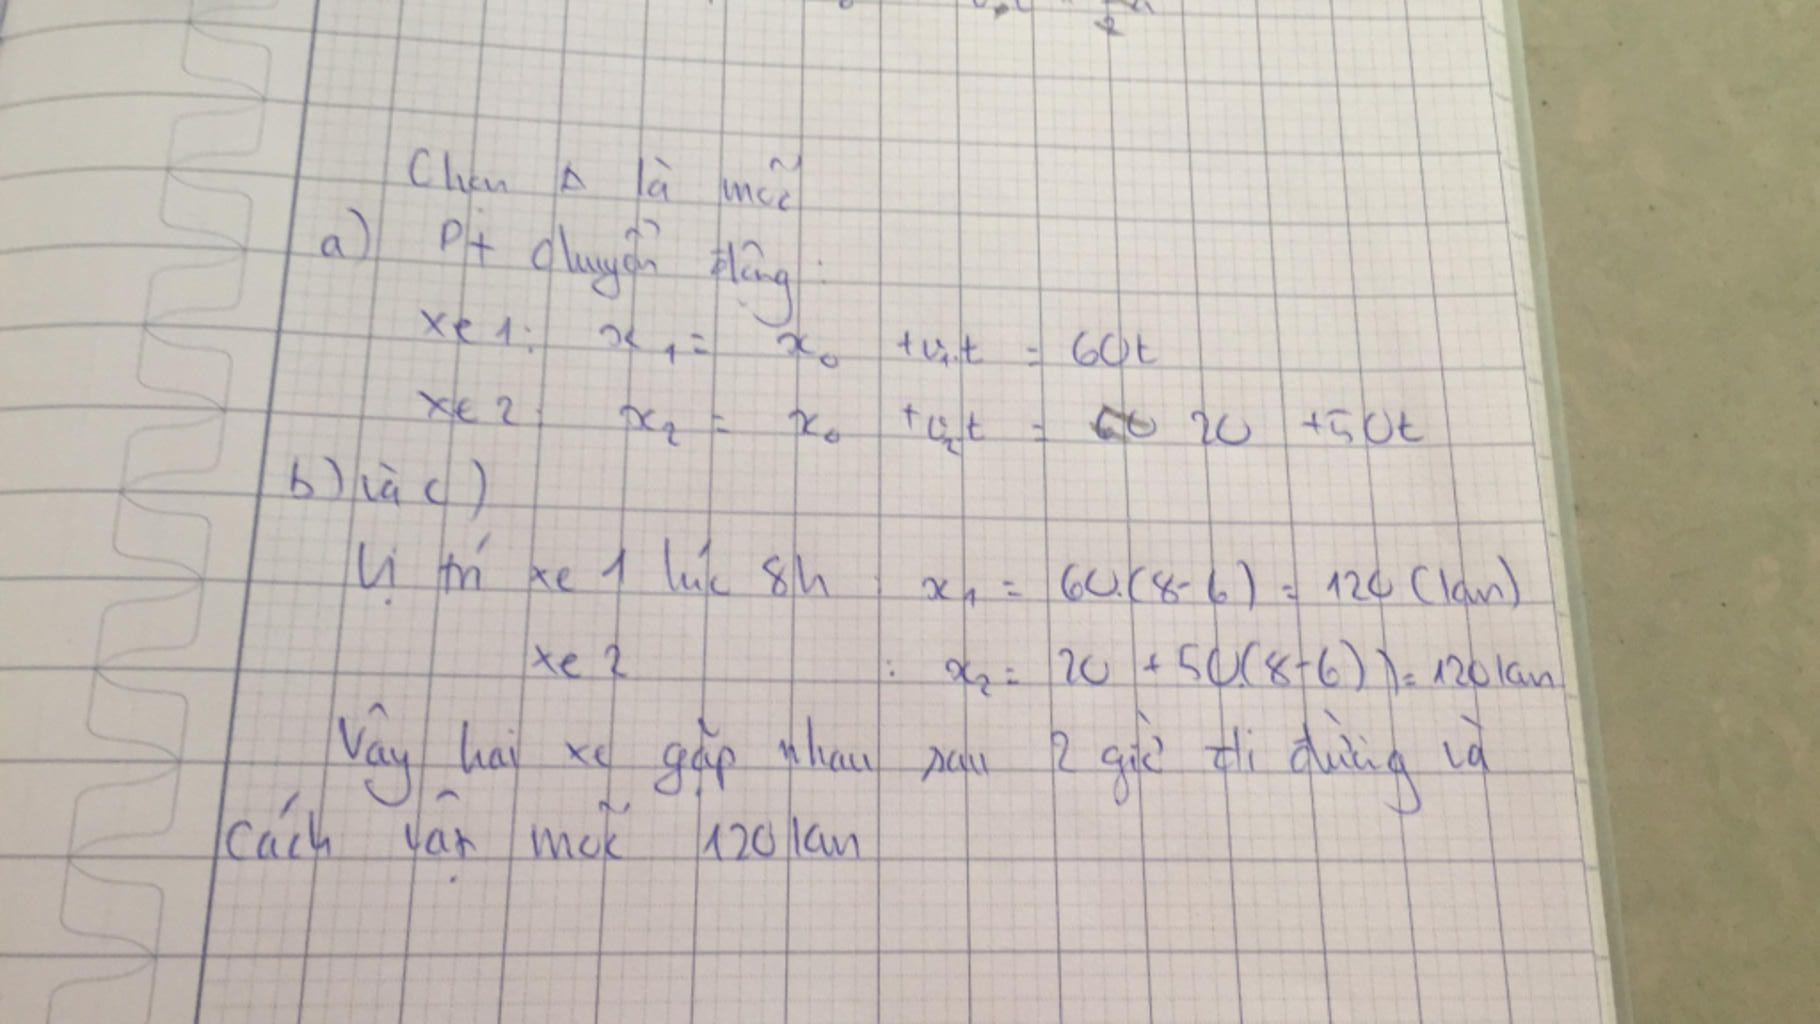 Chọn A là mốc
a) Pt chuyển động:
xe 1: x₁ = x₀ + v₁.t = 60t
xe 2: x₂ = x₀ + v₂t = 20 + 50t
b) và c)
Vị trí xe 1 lúc 8h : x₁ = 60.(8-6) = 120 (km)
xe 2 : x₂ = 20 + 50.(8-6) = 120 km
Vậy hai xe gặp nhau sau 2 giờ đi đường và
cách vật mốc 120 km